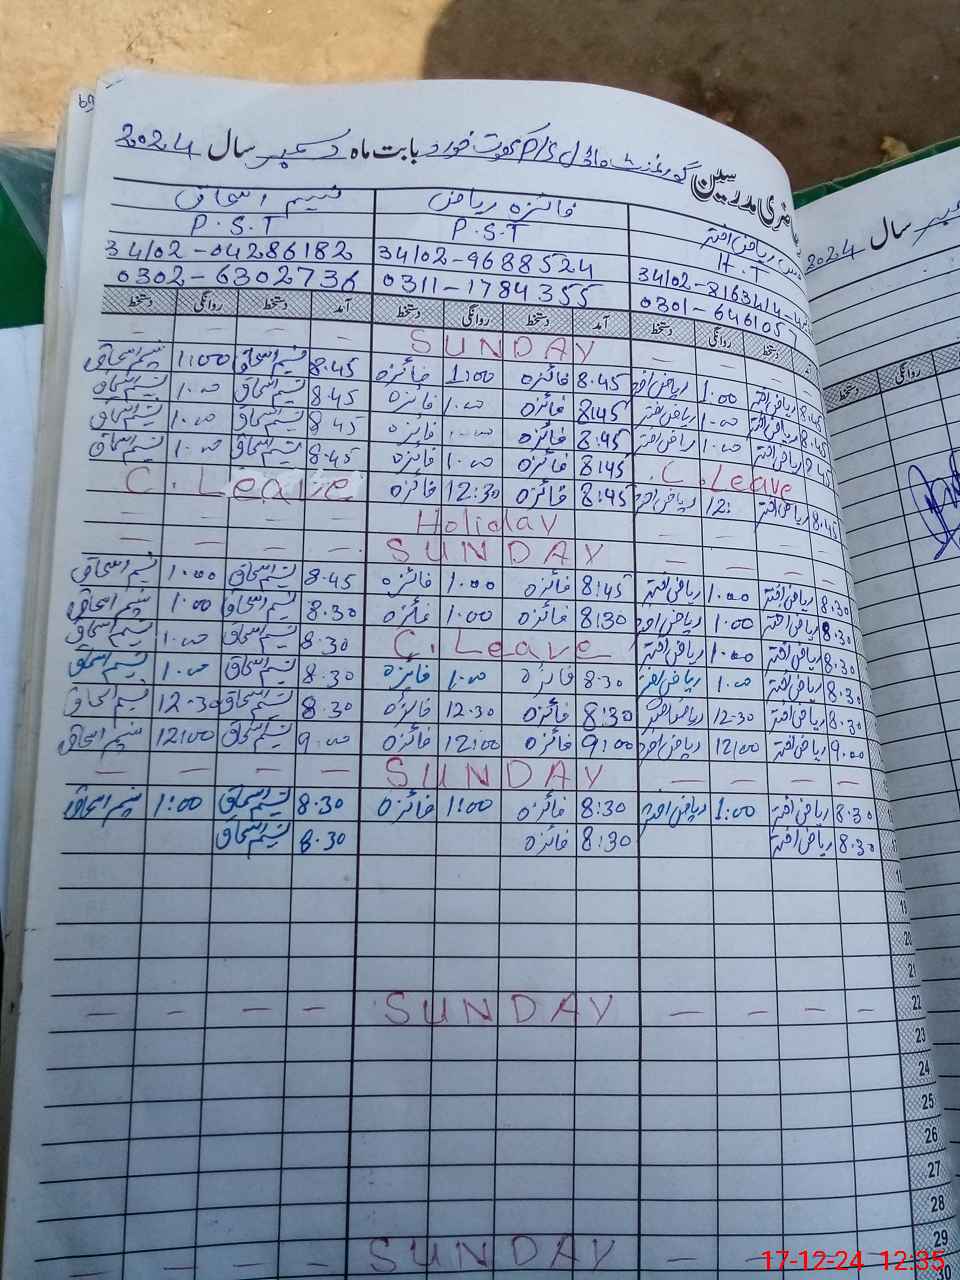 حاضری مدرسین گورنمنٹ ماڈل P/S کوٹ خورد بابت ماہ دسمبر سال 2024
ریاض اختر فائزہ ریاض نسیم اسحاق
H.T P.S.T P.S.T
34102-9688524 34102-04286182
0301-646105 0311-1784355 0302-6302736
دستخط روانگی دستخط آمد دستخط روانگی دستخط آمد دستخط روانگی دستخط
— — — SUNDAY — — —
8.45 ریاض اختر 1.00 ریاض اختر 8.45 فائزہ 1:00 فائزہ 8.45 نسیم اسحاق 1:00 نسیم اسحاق
8.45 ریاض اختر 1.00 ریاض اختر 8:45 فائزہ 1.00 فائزہ 8.45 نسیم اسحاق 1.00 نسیم اسحاق
8.45 ریاض اختر 1.00 ریاض اختر 8:45 فائزہ فائزہ 8.45 نسیم اسحاق 1.00 نسیم اسحاق
8.45 C.Leave 8:45 فائزہ 1.00 فائزہ 8.45 نسیم اسحاق 1.00 نسیم اسحاق
8.45 ریاض اختر 12: ریاض اختر 8:45 فائزہ 12:30 فائزہ C.Leave
— — — — Holiday — — — —
— — — — SUNDAY — — — —
8.30 ریاض اختر 1.00 ریاض اختر 8:45 فائزہ 1.00 فائزہ 8.45 نسیم اسحاق 1.00 نسیم اسحاق
8.30 ریاض اختر 1.00 ریاض اختر 8:30 فائزہ 1.00 فائزہ 8.30 نسیم اسحاق 1.00 نسیم اسحاق
8.30 ریاض اختر 1.00 ریاض اختر C.Leave 8.30 نسیم اسحاق 1.00 نسیم اسحاق
8.30 ریاض اختر 1.00 ریاض اختر 8.30 فائزہ 1.00 فائزہ 8.30 نسیم اسحاق 1.00 نسیم اسحاق
8.30 ریاض اختر 12-30 ریاض اختر 8:30 فائزہ 12.30 فائزہ 8.30 نسیم اسحاق 12.30 نسیم اسحاق
9.00 ریاض اختر 12:00 ریاض اختر 9:00 فائزہ 12:00 فائزہ 9:00 نسیم اسحاق 12:00 نسیم اسحاق
— — — — SUNDAY — — — —
8.30 ریاض اختر 1:00 ریاض اختر 8:30 فائزہ 1:00 فائزہ 8.30 نسیم اسحاق 1:00 نسیم اسحاق
8.30 ریاض اختر 8:30 فائزہ 8.30 نسیم اسحاق
18
19
20
21
22 — — — — SUNDAY — — — —
23
24
25
26
27
28
29 — — SUNDAY — —
30
سال 2024
روانگی
دستخط
17-12-24 12:35